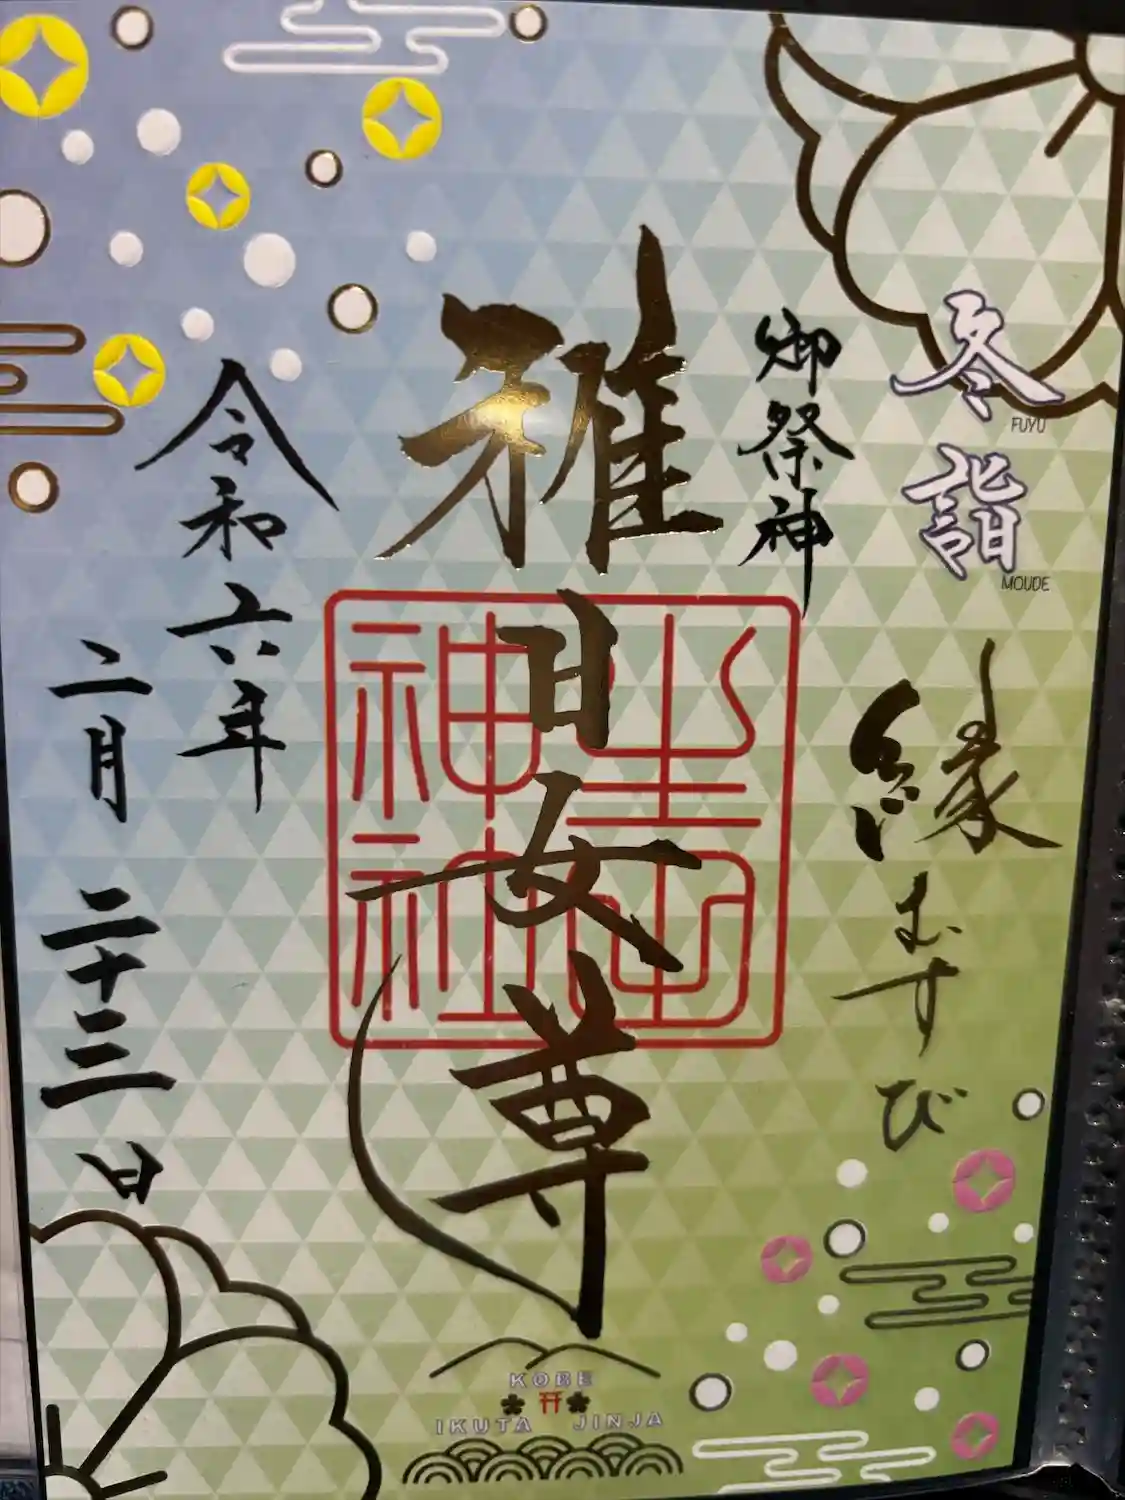 冬詣
FUYU
MOUDE
縁むすび
御祭神
稚日女尊
生田神社
令和六年
二月二十三日
KOBE
IKUTA JINJA